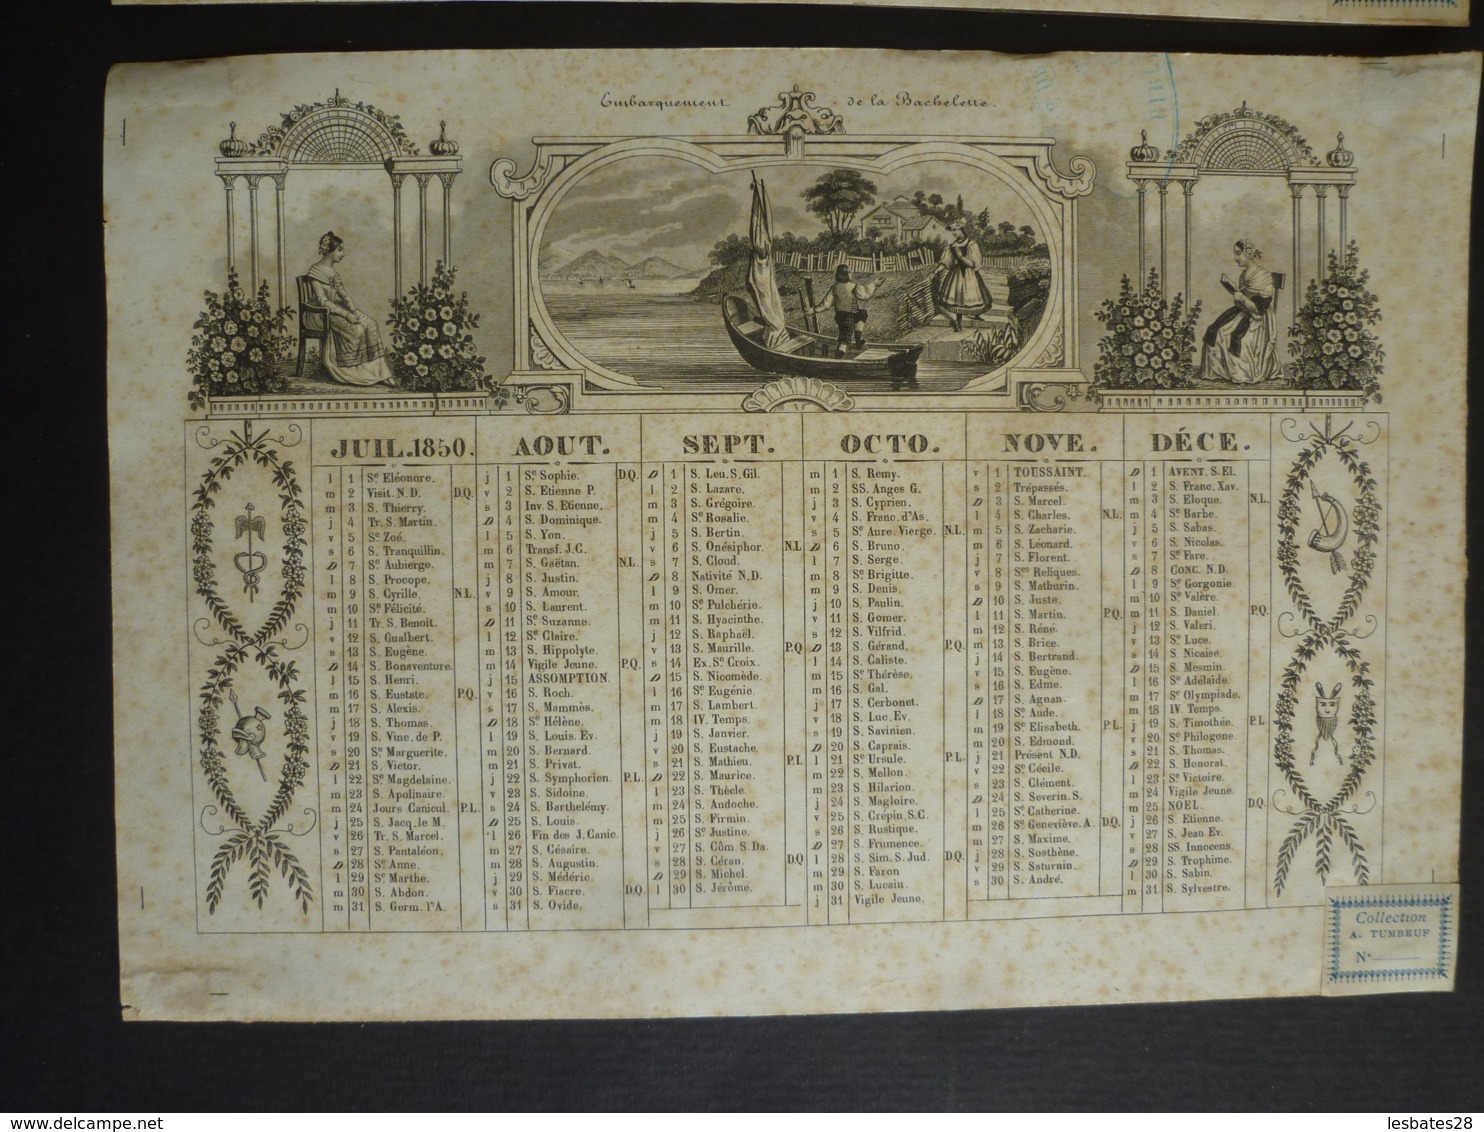 Embarquement de la Bachelette.
JUIL. 1850.
l 1 Sᵉ Eléonore.
m 2 Visit. N. D. D.Q.
m 3 S. Thierry.
j 4 Tr. S. Martin.
v 5 Sᵉ Zoé.
s 6 S. Tranquillin.
D 7 Sᵉ Aubierge.
l 8 S. Procope.
m 9 S. Cyrille. N.L.
m 10 Sᵉ Félicité.
j 11 Tr. S. Benoit.
v 12 S. Gualbert.
s 13 S. Eugène.
D 14 S. Bonaventure.
l 15 S. Henri.
m 16 S. Eustate. P.Q.
m 17 S. Alexis.
j 18 S. Thomas.
v 19 S. Vinc. de P.
s 20 Sᵉ Marguerite.
D 21 S. Victor.
l 22 Sᵉ Magdelaine.
m 23 S. Apolinaire.
m 24 Jours Canicul. P.L.
j 25 S. Jacq. le M.
v 26 Tr. S. Marcel.
s 27 S. Pantaléon.
D 28 Sᵉ Anne.
l 29 Sᵉ Marthe.
m 30 S. Abdon.
m 31 S. Germ. l'A.
AOUT.
j 1 Sᵉ Sophie. D.Q.
v 2 S. Etienne P.
s 3 Inv. S. Etienne.
D 4 S. Dominique.
l 5 S. Yon.
m 6 Transf. J. C.
m 7 S. Gaëtan. N.L.
j 8 S. Justin.
v 9 S. Amour.
s 10 S. Laurent.
D 11 Sᵉ Suzanne.
l 12 Sᵉ Claire.
m 13 S. Hippolyte.
m 14 Vigile Jeune. P.Q.
j 15 ASSOMPTION.
v 16 S. Roch.
s 17 S. Mammès.
D 18 Sᵉ Hélène.
l 19 S. Louis. Ev.
m 20 S. Bernard.
m 21 S. Privat.
j 22 S. Symphorien. P.L.
v 23 S. Sidoine.
s 24 S. Barthelémy.
D 25 S. Louis.
l 26 Fin des J. Canic.
m 27 S. Césaire.
m 28 S. Augustin.
j 29 S. Médéric.
v 30 S. Fiacre. D.Q.
s 31 S. Ovide.
SEPT.
D 1 S. Leu. S. Gil.
l 2 S. Lazare.
m 3 S. Grégoire.
m 4 Sᵉ Rosalie.
j 5 S. Bertin.
v 6 S. Onésiphor. N.L
s 7 S. Cloud.
D 8 Nativité N. D.
l 9 S. Omer.
m 10 Sᵉ Pulchérie.
m 11 S. Hyacinthe.
j 12 S. Raphaël.
v 13 S. Maurille. P.Q
s 14 Ex. Sᵉ Croix.
D 15 S. Nicomède.
l 16 Sᵉ Eugénie.
m 17 S. Lambert.
m 18 IV. Temps.
j 19 S. Janvier.
v 20 S. Eustache.
s 21 S. Mathieu. P.L
D 22 S. Maurice.
l 23 S. Thècle.
m 24 S. Andoche.
m 25 S. Firmin.
j 26 Sᵉ Justine.
v 27 S. Côm. S. Da.
s 28 S. Céran. D.Q
D 29 S. Michel.
l 30 S. Jérôme.
OCTO.
m 1 S. Remy.
m 2 SS. Anges G.
j 3 S. Cyprien.
v 4 S. Franc. d'As.
s 5 Sᵉ Aure. Vierge. N.L.
D 6 S. Bruno.
l 7 S. Serge.
m 8 Sᵉ Brigitte.
m 9 S. Denis.
j 10 S. Paulin.
v 11 S. Gomer.
s 12 S. Vilfrid.
D 13 S. Gérand. P.Q.
l 14 S. Caliste.
m 15 Sᵉ Thérèse.
m 16 S. Gal.
j 17 S. Cerbonet.
v 18 S. Luc. Ev.
s 19 S. Savinien.
D 20 S. Caprais.
l 21 Sᵉ Ursule. P.L.
m 22 S. Mellon.
m 23 S. Hilarion.
j 24 S. Magloire.
v 25 S. Crépin. S. C.
s 26 S. Rustique.
D 27 S. Frumence.
l 28 S. Sim. S. Jud. D.Q.
m 29 S. Faron
m 30 S. Lucain.
j 31 Vigile Jeune.
NOVE.
v 1 TOUSSAINT.
s 2 Trépassés.
D 3 S. Marcel.
l 4 S. Charles. N.L.
m 5 S. Zacharie.
m 6 S. Léonard.
j 7 S. Florent.
v 8 Sᵉˢ Reliques.
s 9 S. Mathurin.
D 10 S. Juste.
l 11 S. Martin. P.Q.
m 12 S. Réné.
m 13 S. Brice.
j 14 S. Bertrand.
v 15 S. Eugène.
s 16 S. Edme.
D 17 S. Agnan.
l 18 Sᵉ Aude.
m 19 Sᵉ Elisabeth. P.L.
m 20 S. Edmond.
j 21 Présent N. D.
v 22 Sᵉ Cécile.
s 23 S. Clément.
D 24 S. Severin. S.
l 25 Sᵉ Catherine.
m 26 Sᵉ Geneviève. A. D.Q.
m 27 S. Maxime.
j 28 S. Sosthène.
v 29 S. Saturnin.
s 30 S. André.
DÉCE.
D 1 AVENT. S. El.
l 2 S. Franc. Xav.
m 3 S. Eloque. N.L.
m 4 Sᵉ Barbe.
j 5 S. Sabas.
v 6 S. Nicolas.
s 7 Sᵉ Fare.
D 8 CONC. N. D.
l 9 Sᵉ Gorgonie.
m 10 Sᵉ Valère.
m 11 S. Daniel. P.Q.
j 12 S. Valeri.
v 13 Sᵉ Luce.
s 14 S. Nicaise.
D 15 S. Mesmin
l 16 Sᵉ Adélaïde.
m 17 Sᵉ Olympiade.
m 18 IV. Temps.
j 19 S. Timothée. P.L.
v 20 Sᵉ Philogone.
s 21 S. Thomas.
D 22 S. Honorat.
l 23 Sᵉ Victoire.
m 24 Vigile Jeune.
m 25 NOËL. D.Q.
j 26 S. Etienne.
v 27 S. Jean Ev.
s 28 SS. Innocens.
D 29 S. Trophime.
l 30 S. Sabin.
m 31 S. Sylvestre.
Collection
A. TUMBEUF
N°
©Delcampe.net
lesbates28